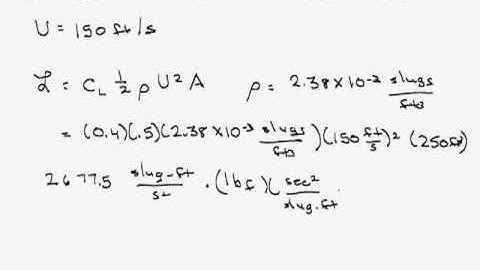 U = 150 ft/s
ℒ = C_L ½ ρ U² A ρ = 2.38 × 10⁻³ slugs/ft³
= (0.4)(.5)(2.38 × 10⁻³ slugs/ft³)(150 ft/s)² (250 ft²)
2677.5 slug-ft/s² · (lbf)(sec²/slug·ft